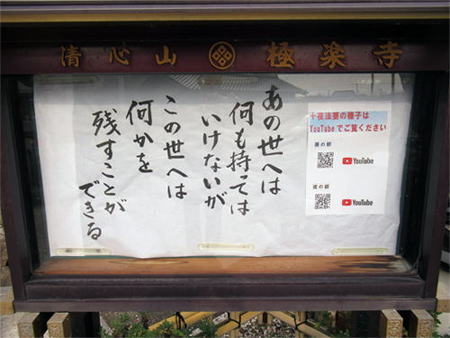 清心山 極楽寺
あの世へは
何も持ては
いけないが
この世へは
何かを
残すことが
できる
十夜法要の様子は
YouTubeでご覧ください
YouTube
YouTube